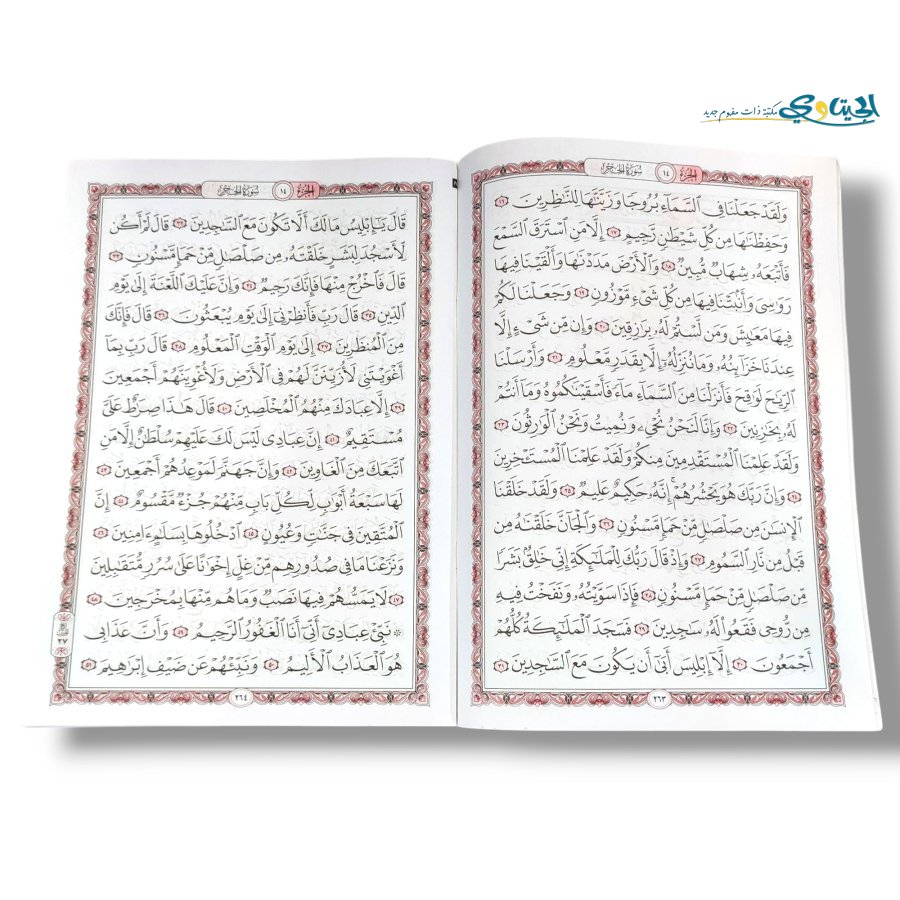 الجيتاوي
مكتبة ذات مفهوم جديد
الجزء ١٤ سورة الحجر
وَلَقَدْ جَعَلْنَا فِي السَّمَاءِ بُرُوجًا وَزَيَّنَّاهَا لِلنَّاظِرِينَ ١٦
وَحَفِظْنَاهَا مِن كُلِّ شَيْطَانٍ رَّجِيمٍ ١٧ إِلَّا مَنِ اسْتَرَقَ السَّمْعَ
فَأَتْبَعَهُ شِهَابٌ مُّبِينٌ ١٨ وَالْأَرْضَ مَدَدْنَاهَا وَأَلْقَيْنَا فِيهَا
رَوَاسِيَ وَأَنبَتْنَا فِيهَا مِن كُلِّ شَيْءٍ مَّوْزُونٍ ١٩ وَجَعَلْنَا لَكُمْ
فِيهَا مَعَايِشَ وَمَن لَّسْتُمْ لَهُ بِرَازِقِينَ ٢٠ وَإِن مِّن شَيْءٍ إِلَّا
عِندَنَا خَزَائِنُهُ وَمَا نُنَزِّلُهُ إِلَّا بِقَدَرٍ مَّعْلُومٍ ٢١ وَأَرْسَلْنَا
الرِّيَاحَ لَوَاقِحَ فَأَنزَلْنَا مِنَ السَّمَاءِ مَاءً فَأَسْقَيْنَاكُمُوهُ وَمَا أَنتُمْ
لَهُ بِخَازِنِينَ ٢٢ وَإِنَّا لَنَحْنُ نُحْيِي وَنُمِيتُ وَنَحْنُ الْوَارِثُونَ ٢٣
وَلَقَدْ عَلِمْنَا الْمُسْتَقْدِمِينَ مِنكُمْ وَلَقَدْ عَلِمْنَا الْمُسْتَأْخِرِينَ
٢٤ وَإِنَّ رَبَّكَ هُوَ يَحْشُرُهُمْ ۚ إِنَّهُ حَكِيمٌ عَلِيمٌ ٢٥ وَلَقَدْ خَلَقْنَا
الْإِنسَانَ مِن صَلْصَالٍ مِّنْ حَمَإٍ مَّسْنُونٍ ٢٦ وَالْجَانَّ خَلَقْنَاهُ مِن
قَبْلُ مِن نَّارِ السَّمُومِ ٢٧ وَإِذْ قَالَ رَبُّكَ لِلْمَلَائِكَةِ إِنِّي خَالِقٌ بَشَرًا
مِّن صَلْصَالٍ مِّنْ حَمَإٍ مَّسْنُونٍ ٢٨ فَإِذَا سَوَّيْتُهُ وَنَفَخْتُ فِيهِ
مِن رُّوحِي فَقَعُوا لَهُ سَاجِدِينَ ٢٩ فَسَجَدَ الْمَلَائِكَةُ كُلُّهُمْ
أَجْمَعُونَ ٣٠ إِلَّا إِبْلِيسَ أَبَىٰ أَن يَكُونَ مَعَ السَّاجِدِينَ ٣١
٢٦٣
الجزء ١٤ سورة الحجر
قَالَ يَا إِبْلِيسُ مَا لَكَ أَلَّا تَكُونَ مَعَ السَّاجِدِينَ ٣٢ قَالَ لَمْ أَكُن
لِّأَسْجُدَ لِبَشَرٍ خَلَقْتَهُ مِن صَلْصَالٍ مِّنْ حَمَإٍ مَّسْنُونٍ ٣٣
قَالَ فَاخْرُجْ مِنْهَا فَإِنَّكَ رَجِيمٌ ٣٤ وَإِنَّ عَلَيْكَ اللَّعْنَةَ إِلَىٰ يَوْمِ
الدِّينِ ٣٥ قَالَ رَبِّ فَأَنظِرْنِي إِلَىٰ يَوْمِ يُبْعَثُونَ ٣٦ قَالَ فَإِنَّكَ
مِنَ الْمُنظَرِينَ ٣٧ إِلَىٰ يَوْمِ الْوَقْتِ الْمَعْلُومِ ٣٨ قَالَ رَبِّ بِمَا
أَغْوَيْتَنِي لَأُزَيِّنَنَّ لَهُمْ فِي الْأَرْضِ وَلَأُغْوِيَنَّهُمْ أَجْمَعِينَ
٣٩ إِلَّا عِبَادَكَ مِنْهُمُ الْمُخْلَصِينَ ٤٠ قَالَ هَٰذَا صِرَاطٌ عَلَيَّ
مُسْتَقِيمٌ ٤١ إِنَّ عِبَادِي لَيْسَ لَكَ عَلَيْهِمْ سُلْطَانٌ إِلَّا مَنِ
اتَّبَعَكَ مِنَ الْغَاوِينَ ٤٢ وَإِنَّ جَهَنَّمَ لَمَوْعِدُهُمْ أَجْمَعِينَ ٤٣
لَهَا سَبْعَةُ أَبْوَابٍ لِّكُلِّ بَابٍ مِّنْهُمْ جُزْءٌ مَّقْسُومٌ ٤٤ إِنَّ
الْمُتَّقِينَ فِي جَنَّاتٍ وَعُيُونٍ ٤٥ ادْخُلُوهَا بِسَلَامٍ آمِنِينَ ٤٦
وَنَزَعْنَا مَا فِي صُدُورِهِم مِّنْ غِلٍّ إِخْوَانًا عَلَىٰ سُرُرٍ مُّتَقَابِلِينَ
٤٧ لَا يَمَسُّهُمْ فِيهَا نَصَبٌ وَمَا هُم مِّنْهَا بِمُخْرَجِينَ ٤٨
۞ نَبِّئْ عِبَادِي أَنِّي أَنَا الْغَفُورُ الرَّحِيمُ ٤٩ وَأَنَّ عَذَابِي
هُوَ الْعَذَابُ الْأَلِيمُ ٥٠ وَنَبِّئْهُمْ عَن ضَيْفِ إِبْرَاهِيمَ ٥١
٢٧
٢٦٤